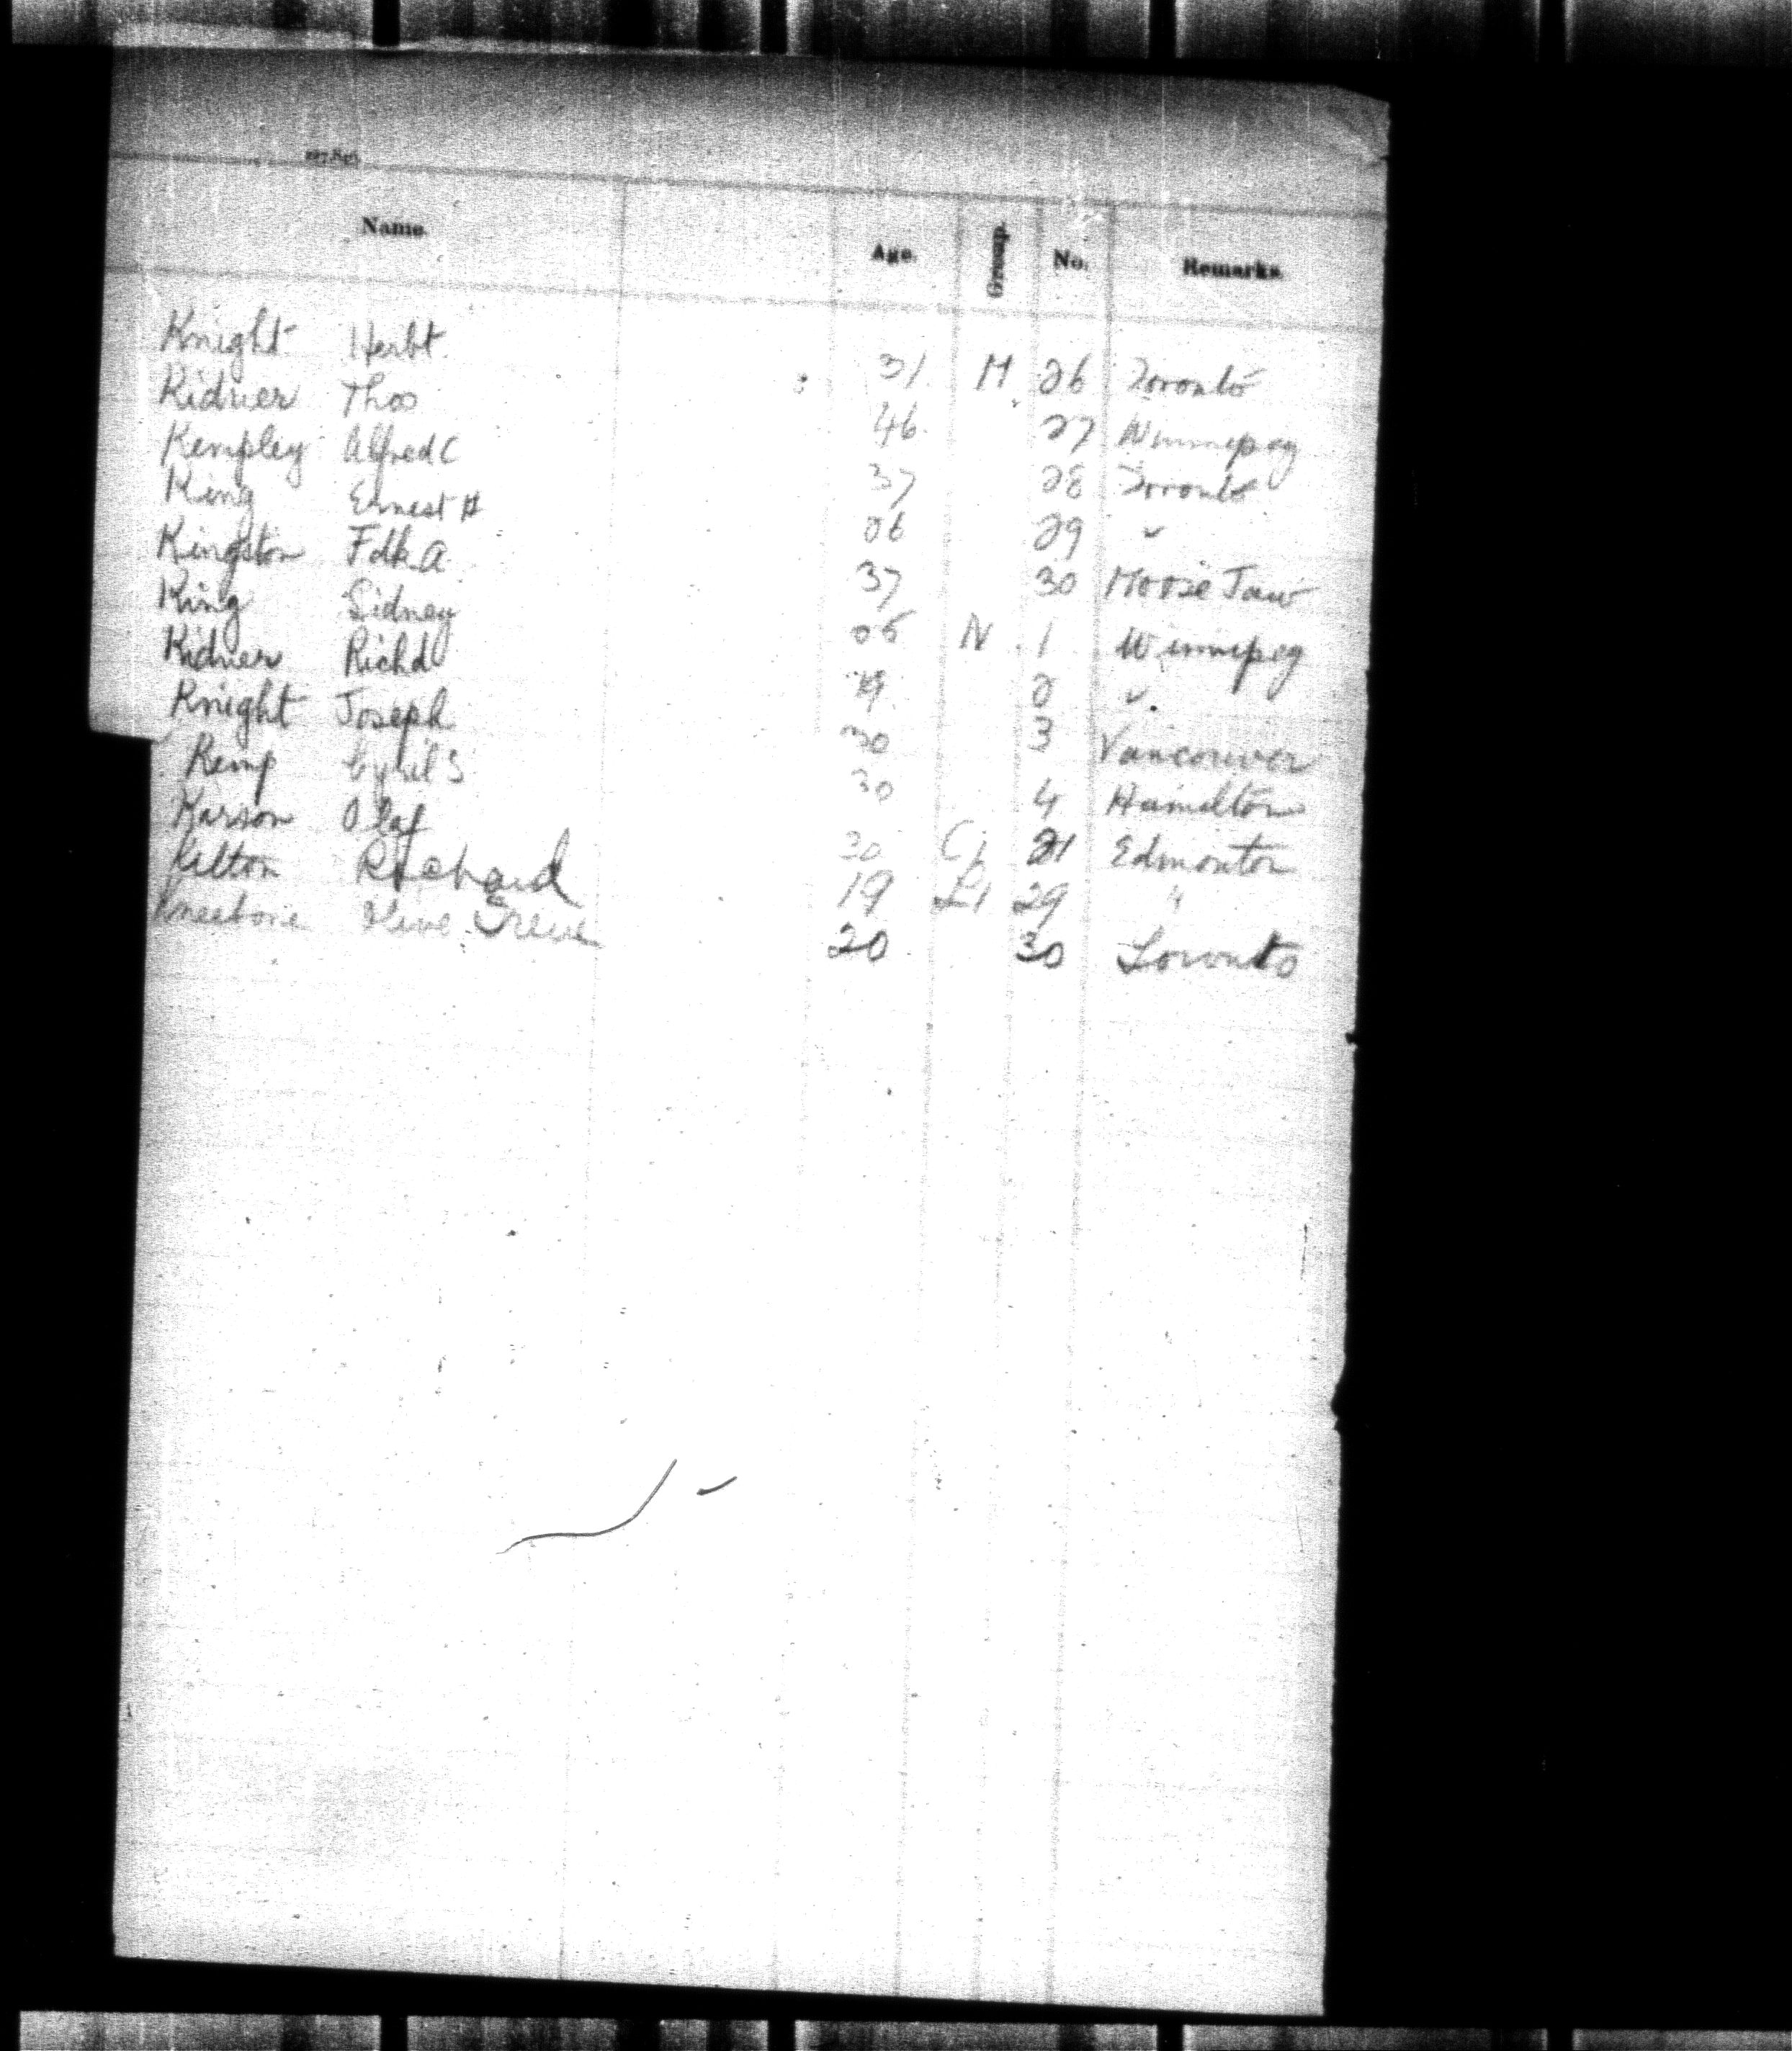 Name. Age. Group No. Remarks.
Knight Herbt. 31 M 26 Toronto
Kidner Thos 46 27 Winnipeg
Kempley Alfred C 37 28 Toronto
King Ernest H 26 29 "
Kingston Fdk A. 37 30 Moose Jaw
King Sidney 26 N 1 Winnipeg
Kidner Richd 19 2 "
Knight Joseph 30 3 Vancouver
Kemp Cyril S 30 4 Hamilton
Karson Olaf 30 21 Edmonton
Kilton Richard 19 29 "
Kneebone 20 30 Toronto